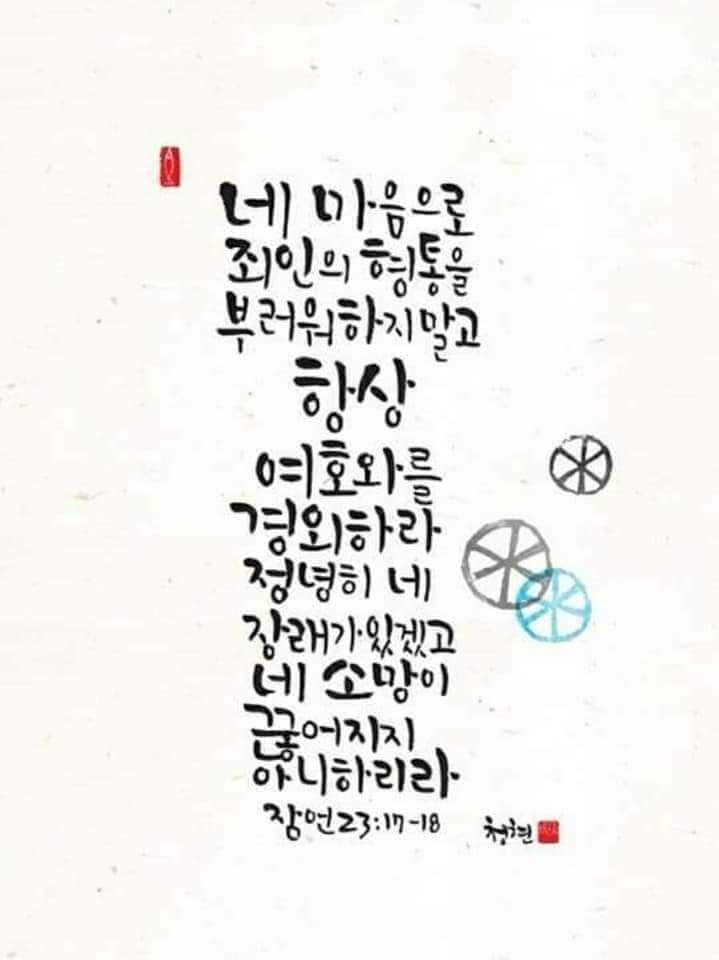 네 마음으로
죄인의 형통을
부러워하지말고
항상
여호와를
경외하라
정녕히 네
장래가있겠고
네 소망이
끊어지지
아니하리라
잠언23:17-18
청현